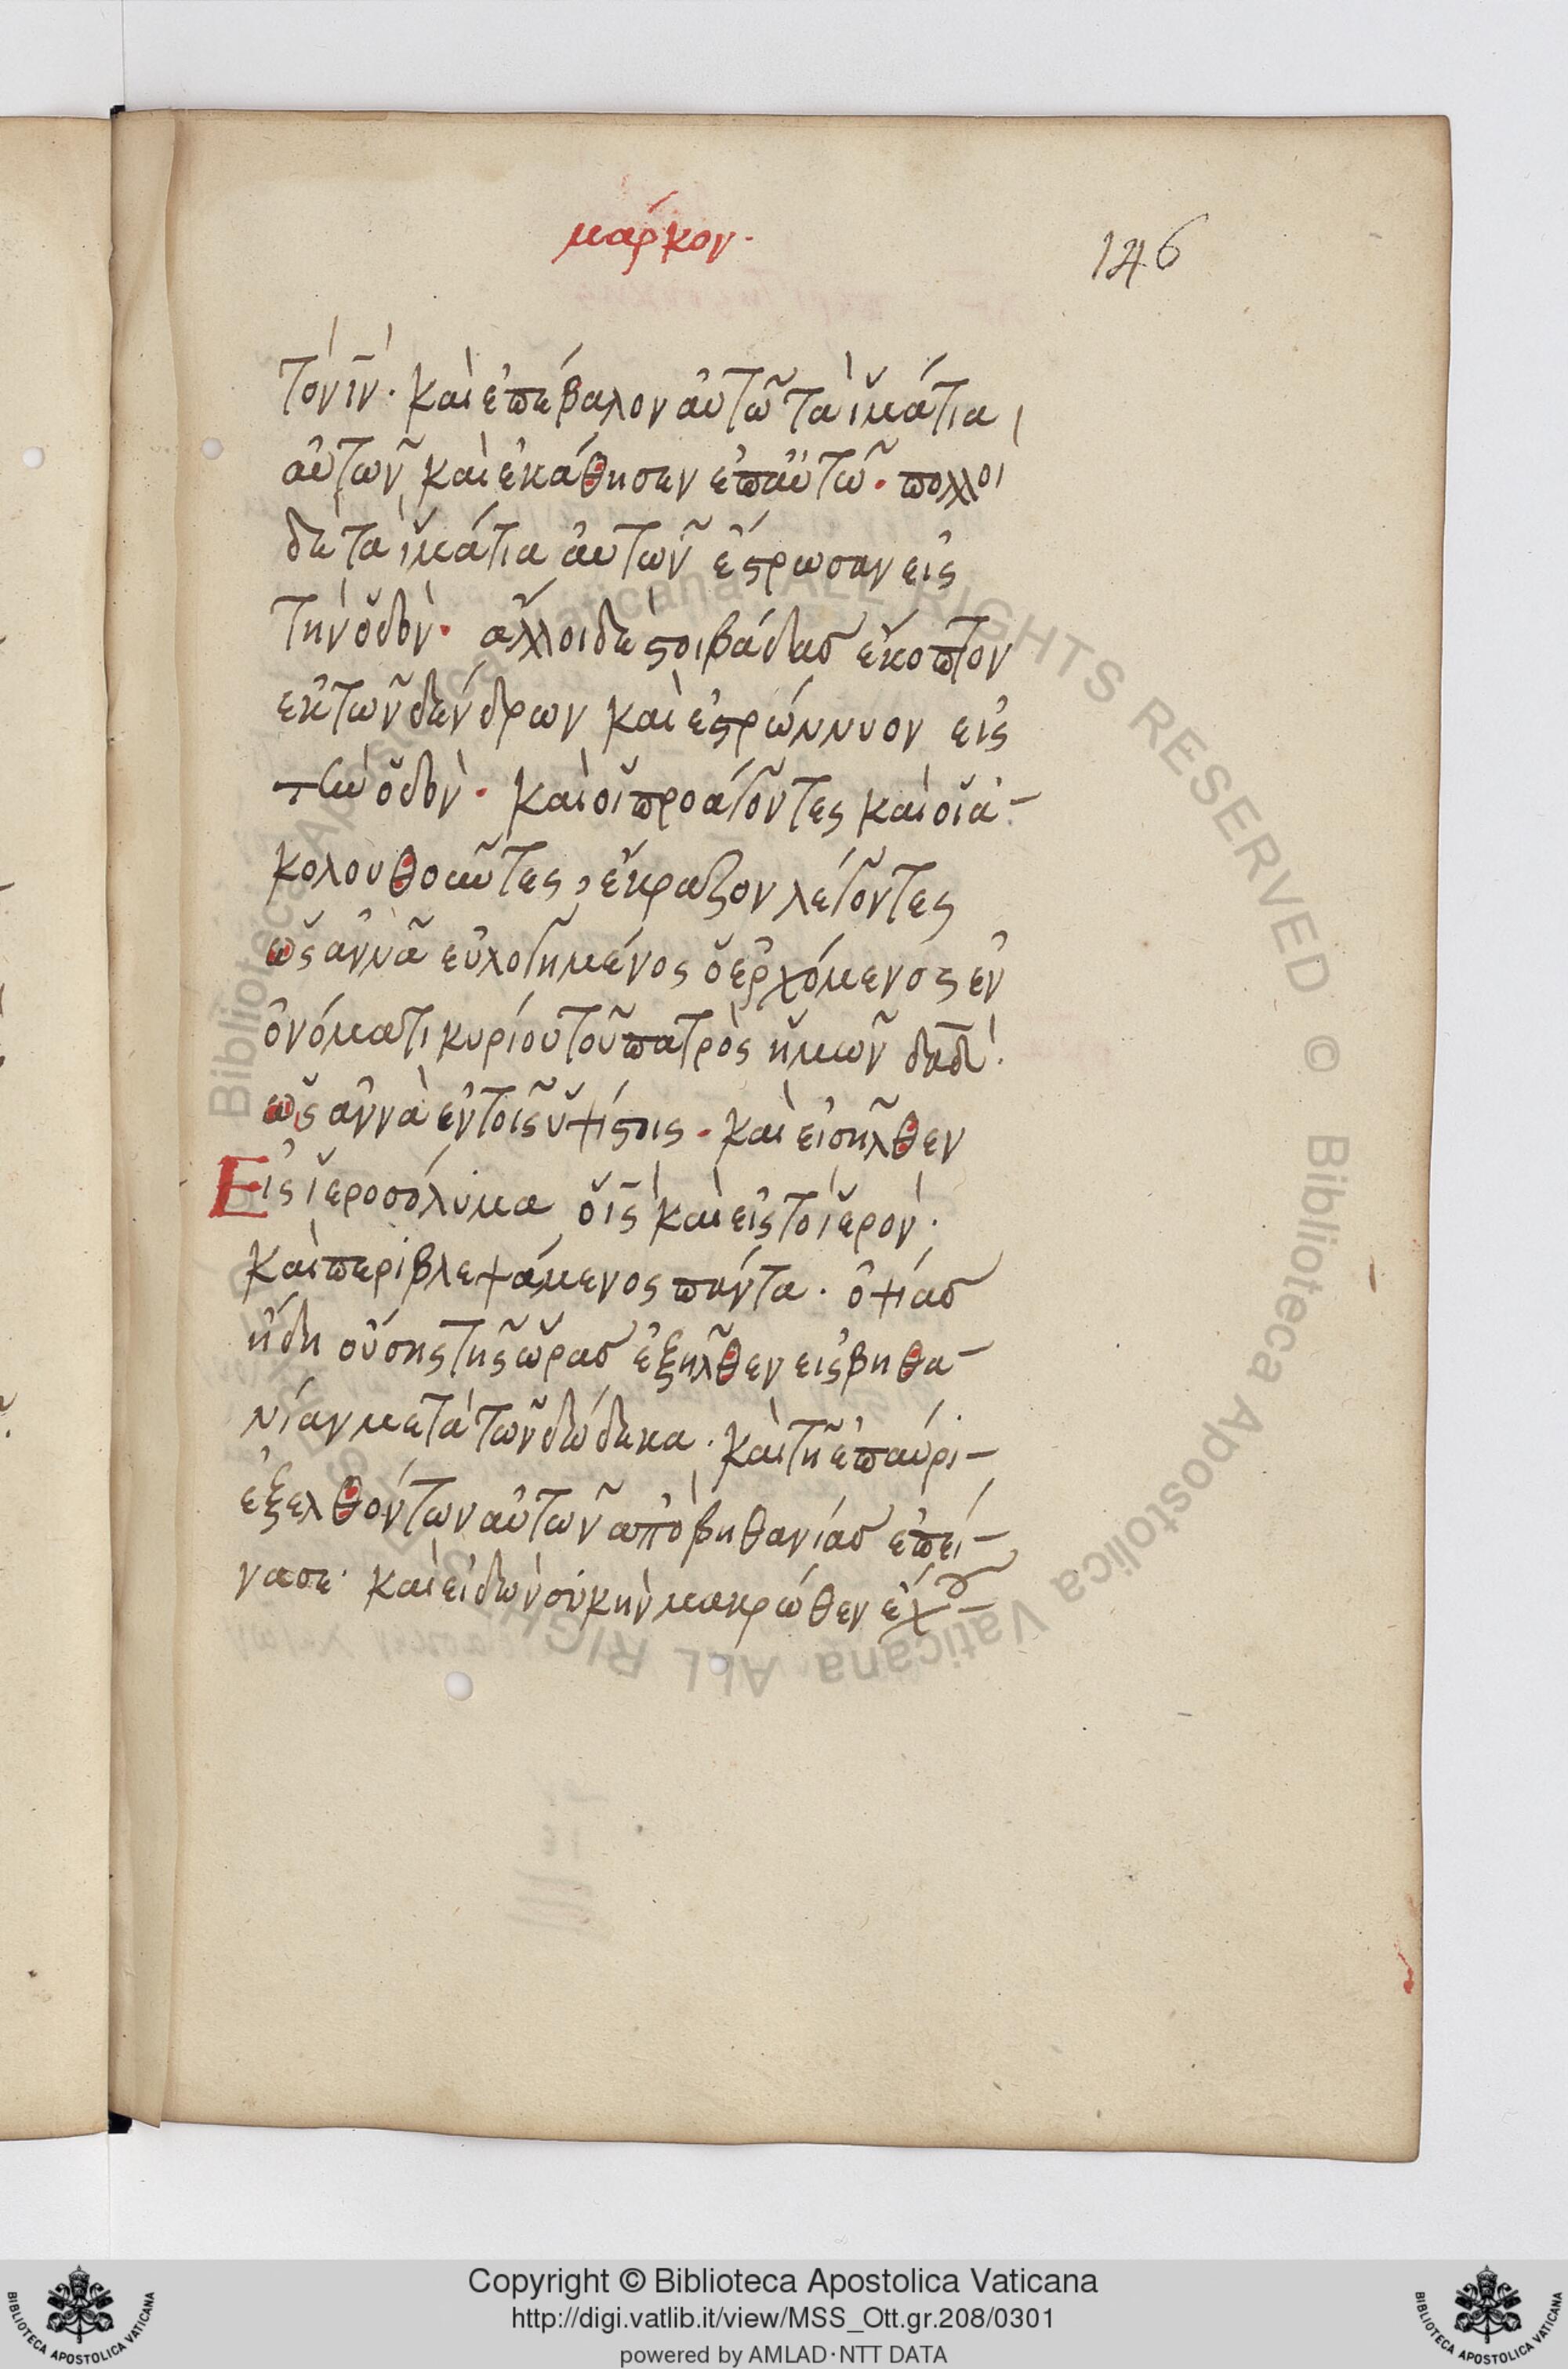 μάρκον·
146
τὸν ιν̅· καὶ ἐπέβαλον αὐτῶ τὰ ἱμάτια
αὐτῶν, καὶ ἐκάθησεν ἐπ αὐτῶ· πολλοὶ
δὲ τὰ ἱμάτια αὐτῶν ἔστρωσαν εἰς
τὴν ὁδὸν· ἄλλοι δὲ στοιβάδας ἔκοπτον
ἐκ τῶν δένδρων καὶ ἐστρώννυον εἰς
τὴν ὁδὸν· καὶ οἱ προάγοντες καὶ οἱ ἀ-
κολουθοῦντες, ἔκραζον λέγοντες
ὡσαννᾶ εὐλογημένος ὁ ἐρχόμενος ἐν
ὀνόματι κυρίου τοῦ πατρὸς ἡμῶν δαδ̅·
ὡσαννὰ ἐν τοῖς ὑψίστοις· καὶ εἰσῆλθεν
Εἰς ἱεροσόλυμα ὁ ις̅ καὶ εἰς τὸ ἱερὸν·
καὶ περιβλεψάμενος πάντα· ὀψίας
ἤδη οὔσης τῆς ὥρας ἐξῆλθεν εἰς βηθα-
νίαν μετὰ τῶν δώδεκα· καὶ τῆ ἐπαύρι-
ἐξελθόντων αὐτῶν ἀπὸ βηθανίας ἐπεί-
νασε· καὶ εἰδὼν συκὴν μακρώθεν ἔχου-
Copyright © Biblioteca Apostolica Vaticana
http://digi.vatlib.it/view/MSS_Ott.gr.208/0301
powered by AMLAD·NTT DATA
BIBLIOTECA APOSTOLICA VATICANA
BIBLIOTECA APOSTOLICA VATICANA
Biblioteca Apostolica Vaticana ALL RIGHTS RESERVED © Biblioteca Apostolica Vaticana ALL RIGHTS RESERVED ©